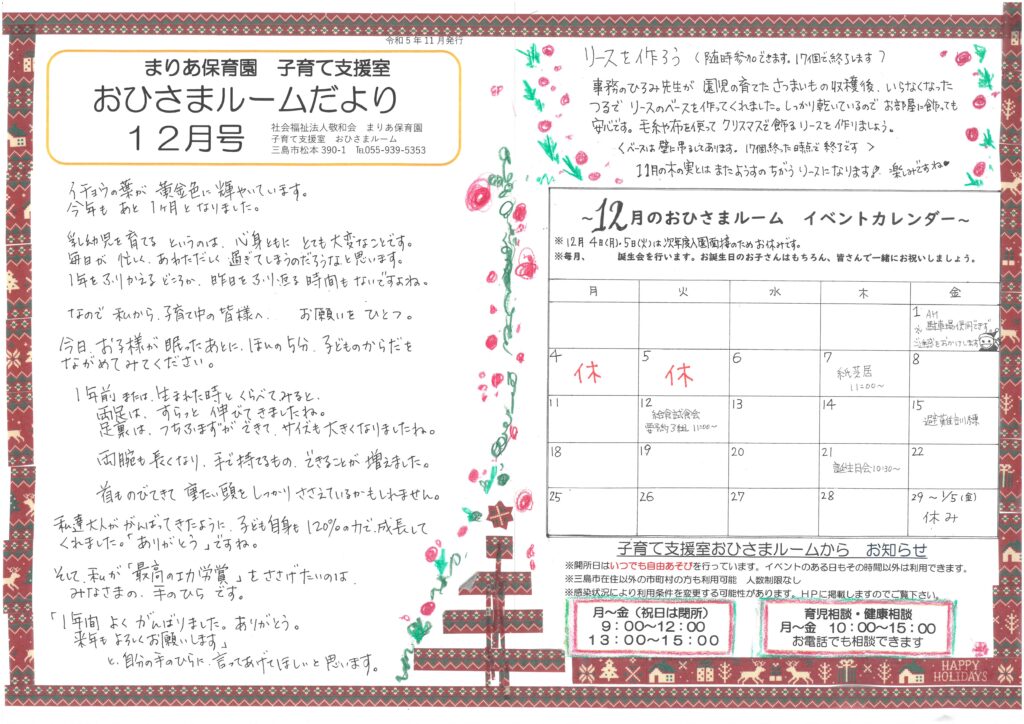 令和５年11月発行
まりあ保育園　子育て支援室
おひさまルームだより
１２月号
社会福祉法人敬和会　まりあ保育園
子育て支援室　おひさまルーム
三島市松本 390-1　℡055-939-5353
イチョウの葉が 黄金色に輝やいています。
今年も あと 1ヶ月となりました。
乳幼児を育てる というのは、心身ともに とても大変なことです。
毎日が 忙しく、あわただしく 過ぎてしまうのだろうなと思います。
1年をふりかえるどころか、昨日をふり返る時間もないですよね。
なので 私から、子育て中の皆様へ、 お願いを ひとつ。
今日、お子様が 眠ったあとに、ほんの5分、子どものからだを
ながめてみてください。
1年前 または、生まれた時と くらべてみると、
両足は、すらっと 伸びてきましたね。
足裏は、つちふまずができて、サイズも大きくなりましたね。
両腕も長くなり、手で持てるもの、できることが 増えました。
首ものびてきて 重たい頭を しっかり ささえているかもしれません。
私達大人が がんばってきたように、子ども自身も 120%の力で、成長して
くれました。「ありがとう」ですね。
そして、私が「最高の功労賞」をささげたいのは、
みなさまの、手のひら です。
「1年間 よく がんばりました。ありがとう。
来年も よろしくお願いします」
と、自分の手のひらに、言ってあげてほしいと思います。
リースを作ろう （随時参加できます。17個で終了します）
事務のひろみ先生が 園児の育てた さつまいもの収穫後、いらなくなった
つるで リースのベースを作ってくれました。しっかり乾いているので お部屋に飾っても
安心です。毛糸や布を使って クリスマスで飾る リースを 作りましょう。
＜ベースは 壁に吊るしてあります。17個終った時点で 終了です ＞
11月の木の実とは またようすの ちがう リースになります♪ 楽しみですね♥
～12月のおひさまルーム　イベントカレンダー～
※12月 4日(月)・5日(火)は次年度入園面接のためお休みです。
※毎月、　　誕生会を行います。お誕生日のお子さんはもちろん、皆さんで一緒にお祝いしましょう。
月 火 水 木 金
1 AM
※ 駐車場使用できず
ご迷惑をおかけします
4 休 5 休 6 7 紙芝居 11:00～ 8
11 12 給食試食会 要予約3組 11:00～ 13 14 15 避難訓練
18 19 20 21 誕生日会10:30～ 22
25 26 27 28 29～1/5(金) 休み
子育て支援室おひさまルームから　お知らせ
※開所日はいつでも自由あそびを行っています。イベントのある日もその時間以外は利用できます。
※三島市在住以外の市町村の方も利用可能　人数制限なし
※感染状況により利用条件を変更する可能性があります。ＨＰに掲載しますのでご覧下さい。
月～金（祝日は閉所）
９：００～１２：００
１３：００～１５：００
育児相談・健康相談
月～金　１０：００～１５：００
お電話でも相談できます
HAPPY
HOLIDAYS